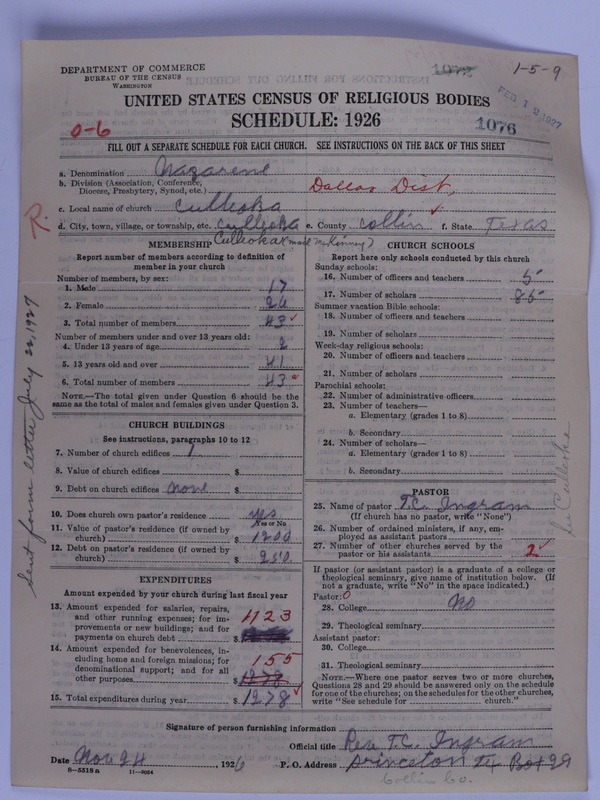 DEPARTMENT OF COMMERCE
BUREAU OF THE CENSUS
WASHINGTON
1-5-9
FEB 12 1927
UNITED STATES CENSUS OF RELIGIOUS BODIES
SCHEDULE: 1926
0-6
1076
FILL OUT A SEPARATE SCHEDULE FOR EACH CHURCH. SEE INSTRUCTIONS ON THE BACK OF THIS SHEET
a. Denomination Nazarene
b. Division (Association, Conference, Diocese, Presbytery, Synod, etc.) Dallas Dist,
c. Local name of church Culleoka
R.
d. City, town, village, or township, etc. Culleoka e. County Collin f. State Texas
Culleoka (mail McKinney)
MEMBERSHIP
Report number of members according to definition of
member in your church
Number of members, by sex:
1. Male 17
2. Female 26
3. Total number of members 43
Number of members under and over 13 years old:
4. Under 13 years of age 2
5. 13 years old and over 41
6. Total number of members 43
NOTE.—The total given under Question 6 should be the
same as the total of males and females given under Question 3.
CHURCH BUILDINGS
See instructions, paragraphs 10 to 12
7. Number of church edifices 1
8. Value of church edifices $
9. Debt on church edifices none $
10. Does church own pastor's residence yes
Yes or No
11. Value of pastor's residence (if owned by
church) $ 1200
12. Debt on pastor's residence (if owned by
church) $ 250
EXPENDITURES
Amount expended by your church during last fiscal year
13. Amount expended for salaries, repairs,
and other running expenses; for im-
provements or new buildings; and for
payments on church debt $ 1123
14. Amount expended for benevolences, in-
cluding home and foreign missions; for
denominational support; and for all
other purposes $ 155
15. Total expenditures during year $ 1278
CHURCH SCHOOLS
Report here only schools conducted by this church
Sunday schools:
16. Number of officers and teachers 5
17. Number of scholars 85
Summer vacation Bible schools:
18. Number of officers and teachers
19. Number of scholars
Week-day religious schools:
20. Number of officers and teachers
21. Number of scholars
Parochial schools:
22. Number of administrative officers
23. Number of teachers—
a. Elementary (grades 1 to 8)
b. Secondary
24. Number of scholars—
a. Elementary (grades 1 to 8)
b. Secondary
PASTOR
25. Name of pastor T.C. Ingram
(If church has no pastor, write "None")
26. Number of ordained ministers, if any, em-
ployed as assistant pastors
27. Number of other churches served by the
pastor or his assistants 2
If pastor (or assistant pastor) is a graduate of a college or
theological seminary, give name of institution below. (If
not a graduate, write "No" in the space indicated.)
Pastor: 0
28. College No
29. Theological seminary
Assistant pastor:
30. College
31. Theological seminary
NOTE.—Where one pastor serves two or more churches,
Questions 28 and 29 should be answered only on the schedule
for one of the churches; on the schedules for the other churches,
write "See schedule for church."
Sent form letter July 22, 1927
Culleoka
Signature of person furnishing information
Official title Rev. T.C. Ingram
Date Nov 24 1926 P. O. Address Princeton Tx Box 29
8—5518 a 11—9054
Collin Co.